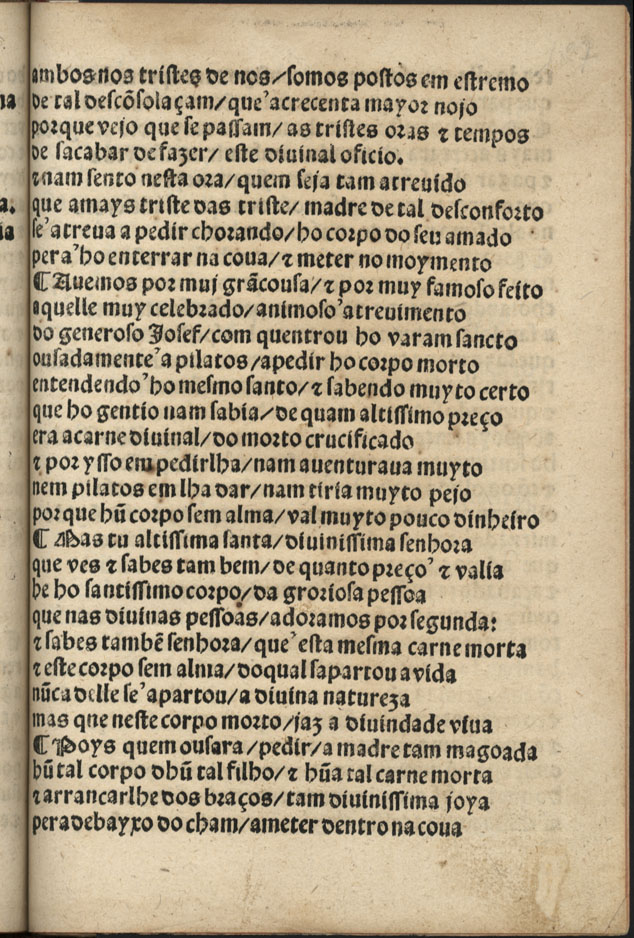 ambos nos tristes de nos/somos postos em estremo
de tal descõsolaçam/que'acrecenta mayor nojo
porque vejo que se passam/as tristes oras ⁊ tempos
de sacabar de fazer/este divinal oficio.
⁊ nam sento nesta ora/quem seja tam atreuido
que amays triste das triste/madre de tal desconforto
se'atreua a pedir chorando/ho corpo do seu amado
pera'ho enterrar na coua/⁊ meter no moymento
¶ Auemos por muj grãcousa/⁊ por muy famoso feito
aquelle muy celebrado/animoso'atreuimento
do generoso Josef/com quentrou ho varam sancto
ousadamente'a pilatos/apedir ho corpo morto
entendendo'ho mesmo santo/⁊ sabendo muyto certo
que ho gentio nam sabia/de quam altissimo preço
era a carne diuinal/do morto crucificado
⁊ por ysso em pedirlha/nam auenturaua muyto
nem pilatos em lha dar/nam tiria muyto pejo
por que hũ corpo sem alma/val muyto pouco dinheiro
¶ Mas tu altissima santa/diuinissima senhora
que ves ⁊ sabes tam bem/de quanto preço'⁊ valia
he ho santissimo corpo/da groriosa pessoa
que nas diuinas pessoas/adoramos por segunda:
⁊ sabes tambẽ senhora/que'esta mesma carne morta
⁊ este corpo sem alma/do qual sapartou a vida
nũca delle se'apartou/a diuina natureza
mas que neste corpo morto/jaz a diuindade viua
¶ Poys quem ousara/pedir/a madre tam magoada
hũ tal corpo dhũ tal filho/⁊ hũa tal carne morta
⁊ arrancarlhe dos braços/tam diuinissima joya
pera debayxo do cham/a meter dentro na coua